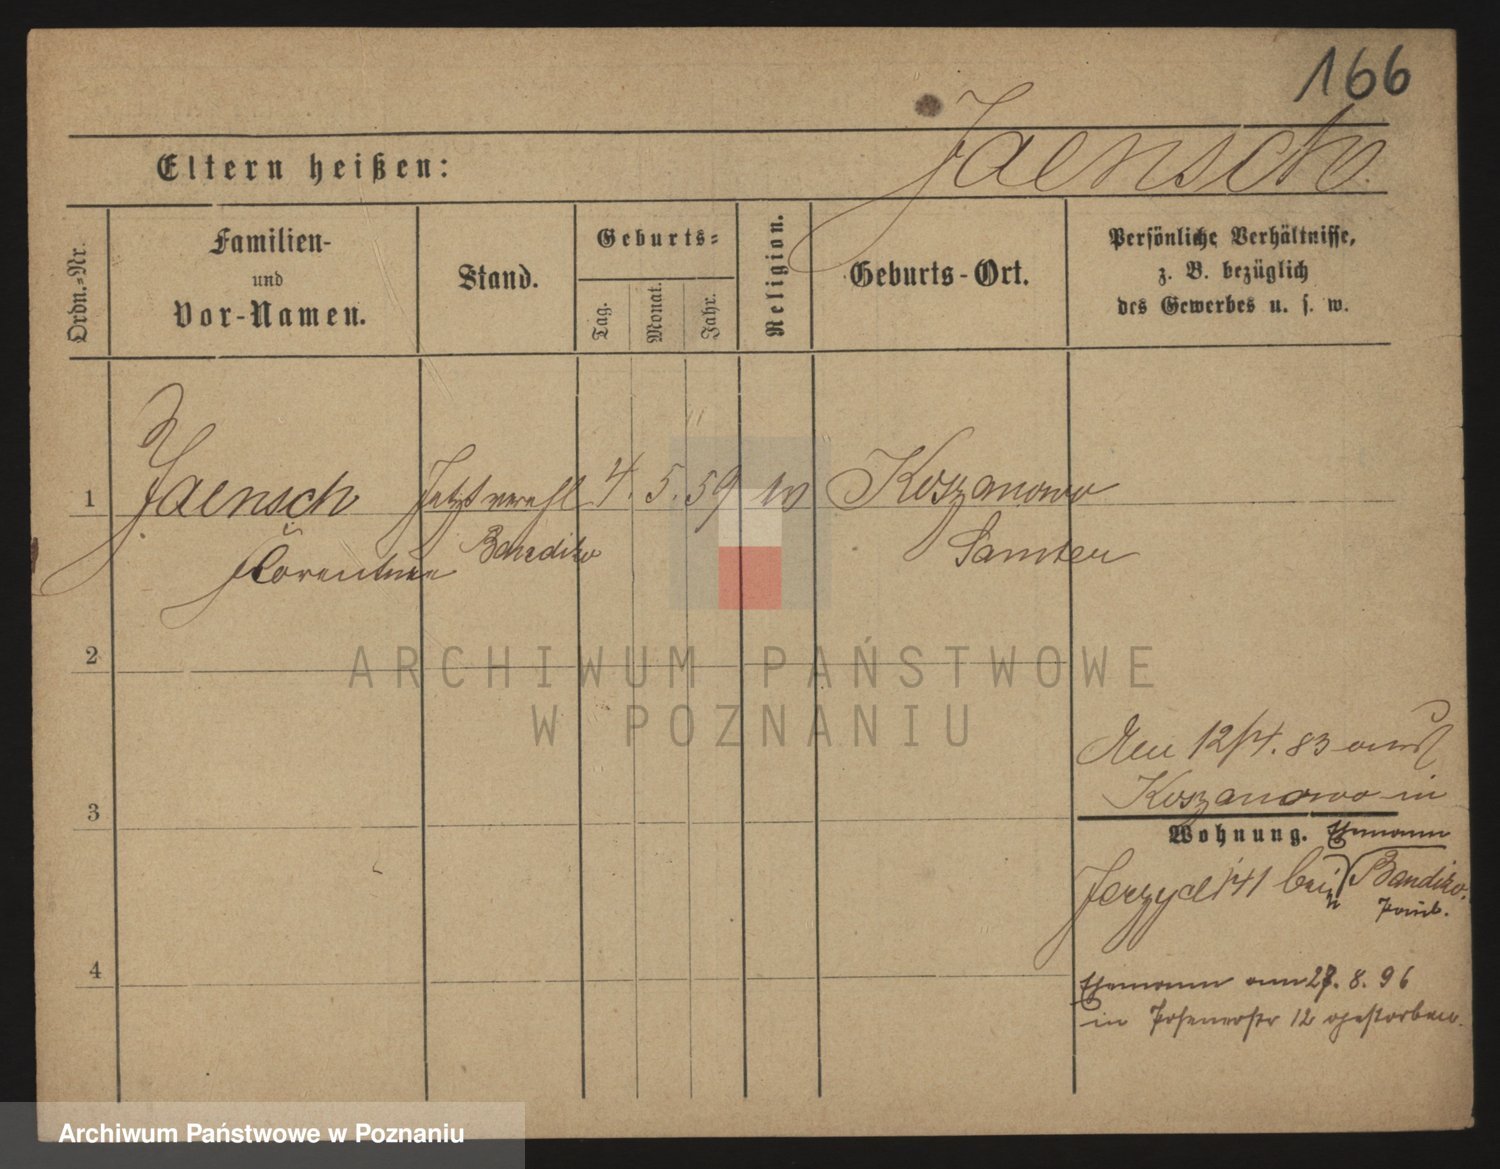 166
Jaensch
Eltern heißen:
Ordn.-Nr.
Familien-
und
Vor-Namen.
Stand.
Geburts-
Tag.
Monat.
Jahr.
Religion.
Geburts-Ort.
Persönliche Verhältnisse,
z. B. bezüglich
des Gewerbes u. s. w.
1
Jaensch
Jetzt verehl
4. 5. 59
Koszanowo
Florentine
Bandizo
Samter
2
ARCHIWUM PAŃSTWOWE
W POZNANIU
Den 12/4. 83 aus
3
Koszanowo in
Wohnung.
Ehmann
Jerzyce 141 bei
Bandizo
4
Ehemann am 27. 8. 96
in Posenerstr 12 gestorben.
Archiwum Państwowe w Poznaniu